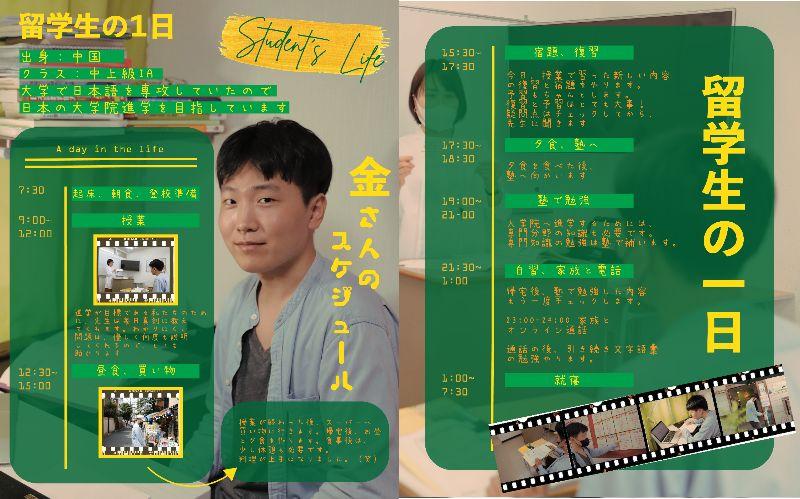 留学生の1日
Student's Life
出身：中国
クラス：中上級1A
大学で日本語を専攻していたので
日本の大学院進学を目指しています
A day in the life
7:30
起床、朝食、登校準備
9:00~
12:00
授業
進学が目標である私たちのため
に、先生は毎日真剣に教え
てくれます。わかりにくい
問題は、優しく何度も説明
してくれるので、とても
助かります
12:30~
15:00
昼食、買い物
授業が終わった後、スーパーへ
買い物に行きます。帰宅後、お昼
と夕食を作ります。食事後は、
少し休憩も必要です。
料理が上手になりました。（笑）
金さんの
スケジュール
15:30~
17:30
宿題、復習
今日、授業で習った新しい内容
の復習と宿題をやります。
予習もちゃんとします。
復習と予習はとても大事！
疑問点はチェックしてから、
先生に聞きます
17:30~
18:30
夕食、塾へ
夕食を食べた後、
塾へ向かいます
19:00~
21:00
塾で勉強
大学院へ進学するためには、
専門分野の知識も必要です。
専門知識の勉強は塾で補います。
21:30~
1:00
自習、家族と電話
帰宅後、塾で勉強した内容
もう一度チェックします。
23:00-24:00 家族と
オンライン通話
通話の後、引き続き文字語彙
の勉強やります。
1:00~
7:30
就寝
留学生の一日